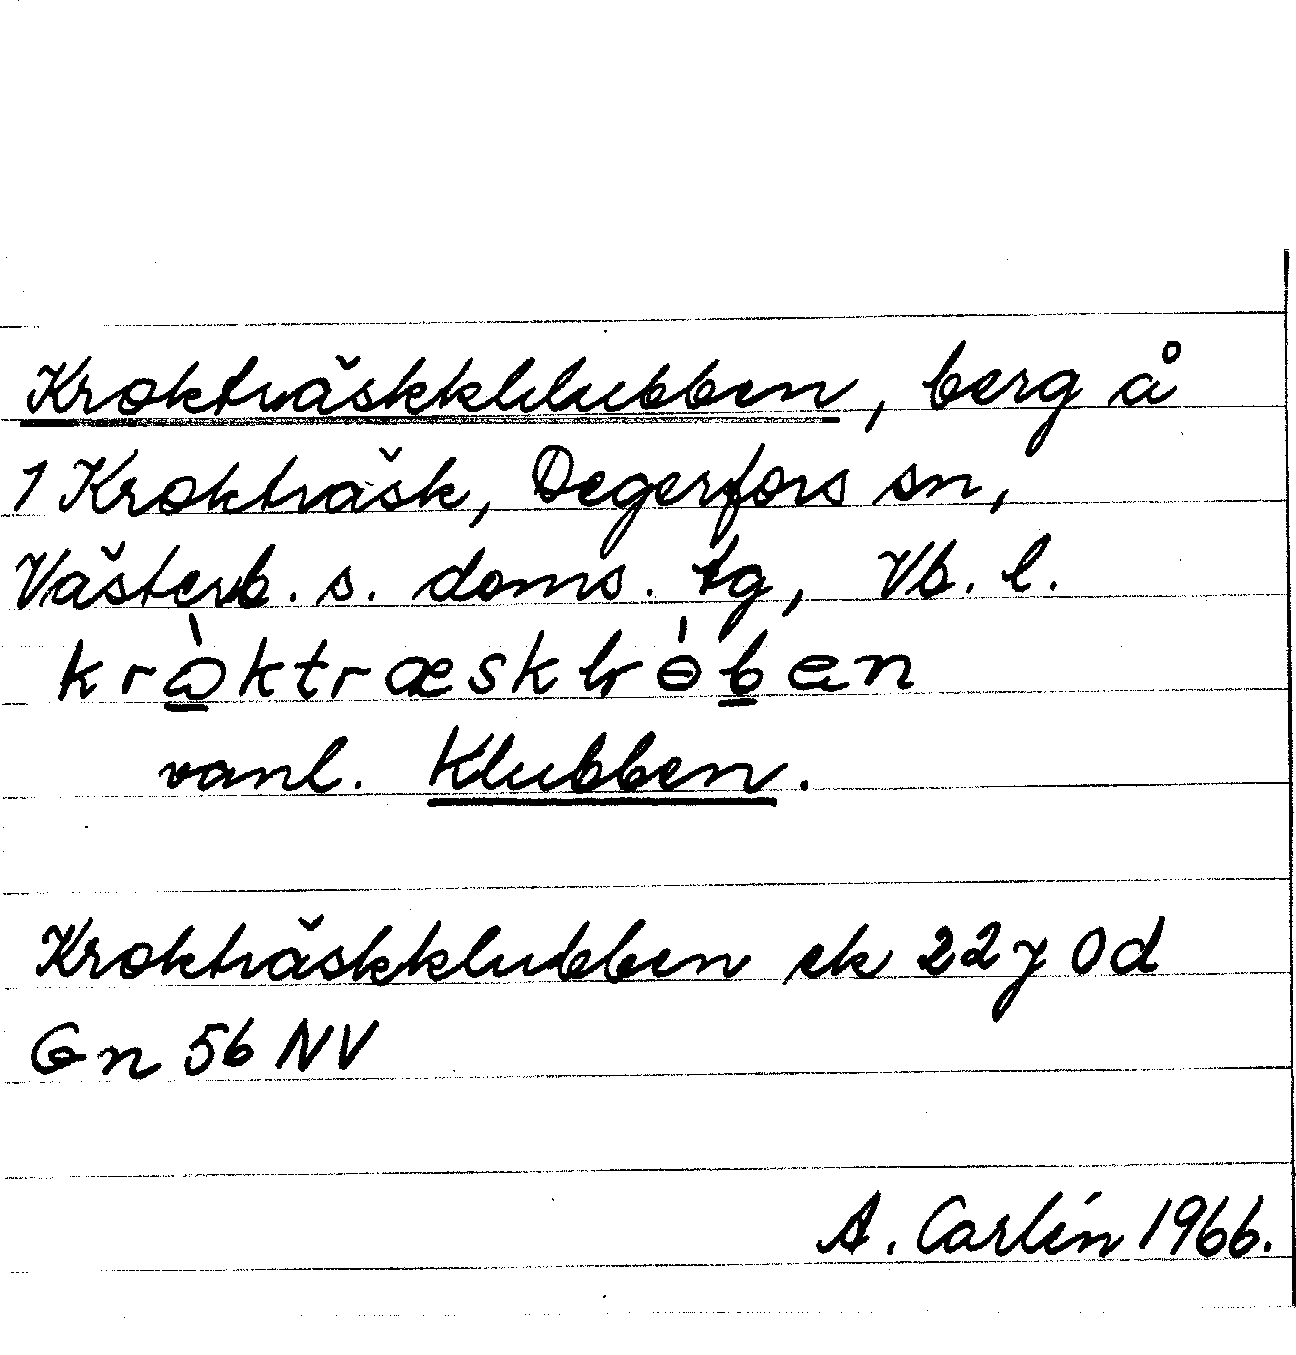 Kroktväskklubben, berg å
1 Kroktväsk, Degerfors sn,
Västerb. s. doms. tg, Vb. l.
vanl. Klubben.
Krokträskklubben ek 22 J 0d
Gn 56 NV
A. Carlín 1966.